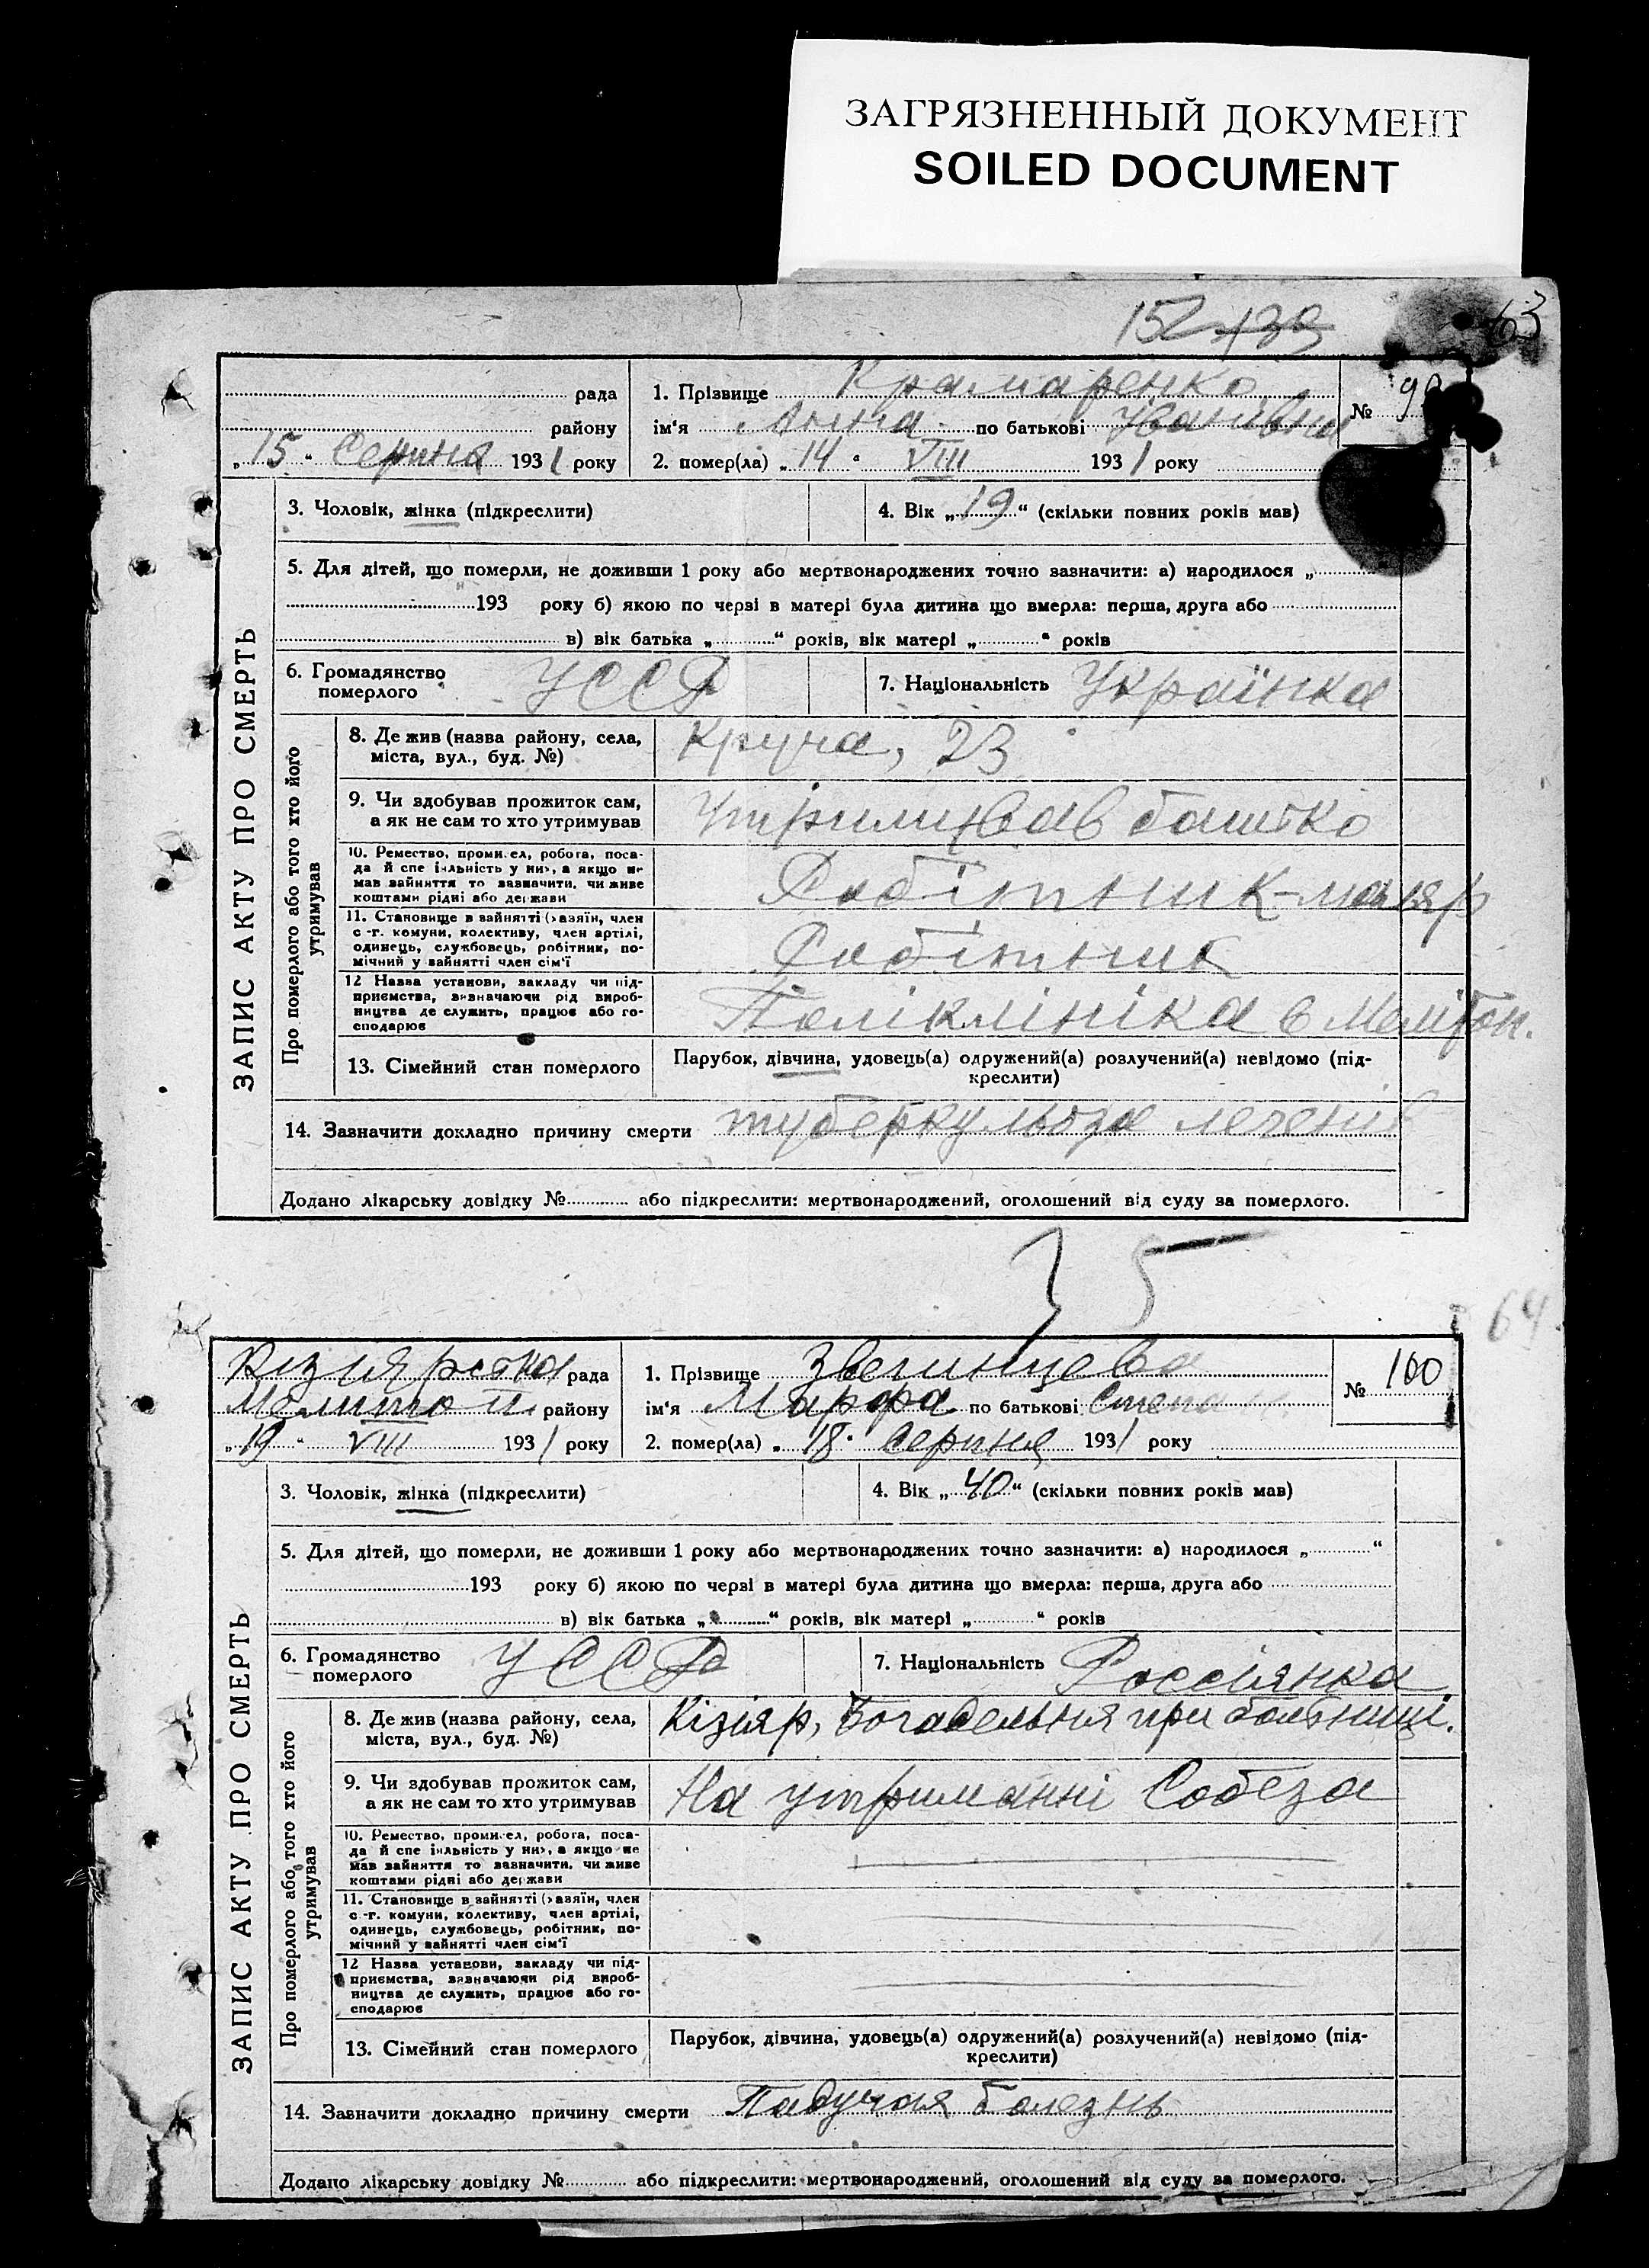 ЗАГРЯЗНЕННЫЙ ДОКУМЕНТ
SOILED DOCUMENT
152 139
63
рада
району
„15“ Серпня 1931 року
1. Прізвище Крамаренко
ім‘я Анна по батькові Іванівна
2. помер(ла) „14“ VIII 1931 року
№
ЗАПИС АКТУ ПРО СМЕРТЬ
3. Чоловік, жінка (підкреслити)
4. Вік „19“ (скільки повних років мав)
5. Для дітей, що померли, не доживши 1 року або мертвонароджених точно зазначити: а) народилося „
193 року б) якою по черзі в матері була дитина що вмерла: перша, друга або
в) вік батька „ “ років, вік матері „ “ років
6. Громадянство
померлого
УССР
7. Національність Українка
Про померлого або того хто його
утримував
8. Де жив (назва району, села,
міста, вул., буд. №)
Круча, 23
9. Чи здобував прожиток сам,
а як не сам то хто утримував
Утримував батько
10. Ремество, промисел, робота, поса-
да й спеціальність у них, а якщо не
мав зайняття то зазначити, чи живе
коштами рідні або держави
Робітник-маляр
11. Становище в зайнятті (хазяїн, член
с.-г. комуни, колективу, член артілі,
одинець, службовець, робітник, по-
мічний у зайнятті член сім‘ї
Робітник
12 Назва установи, закладу чи під-
приємства, визначаючи рід вироб-
ництва де служить, працює або го-
сподарює
Поліклініка в Мелітоп.
13. Сімейний стан померлого
Парубок, дівчина, удовець(а) одружений(а) розлучений(а) невідомо (під-
креслити)
14. Зазначити докладно причину смерти туберкульоза
Додано лікарську довідку № або підкреслити: мертвонароджений, оголошений від суду за померлого.
35
64
Кізіярська рада
Мелитоп. району
„19“ VIII 1931 року
1. Прізвище Звегинцева
ім‘я Марфа по батькові Степан
2. помер(ла) „18“ серпня 1931 року
№ 100
ЗАПИС АКТУ ПРО СМЕРТЬ
3. Чоловік, жінка (підкреслити)
4. Вік „40“ (скільки повних років мав)
5. Для дітей, що померли, не доживши 1 року або мертвонароджених точно зазначити: а) народилося „ “
193 року б) якою по черзі в матері була дитина що вмерла: перша, друга або
в) вік батька „ “ років, вік матері „ “ років
6. Громадянство
померлого
УССР
7. Національність Россіянка
Про померлого або того хто його
утримував
8. Де жив (назва району, села,
міста, вул., буд. №)
Кізіяр, Богадельня при больниці.
9. Чи здобував прожиток сам,
а як не сам то хто утримував
На утриманні Собеза
10. Ремество, промисел, робота, поса-
да й спеціальність у них, а якщо не
мав зайняття то зазначити, чи живе
коштами рідні або держави
11. Становище в зайнятті (хазяїн, член
с.-г. комуни, колективу, член артілі,
одинець, службовець, робітник, по-
мічний у зайнятті член сім‘ї
12 Назва установи, закладу чи під-
приємства, визначаючи рід вироб-
ництва де служить, працює або го-
сподарює
13. Сімейний стан померлого
Парубок, дівчина, удовець(а) одружений(а) розлучений(а) невідомо (під-
креслити)
14. Зазначити докладно причину смерти Падучая болезнь
Додано лікарську довідку № або підкреслити: мертвонароджений, оголошений від суду за померлого.